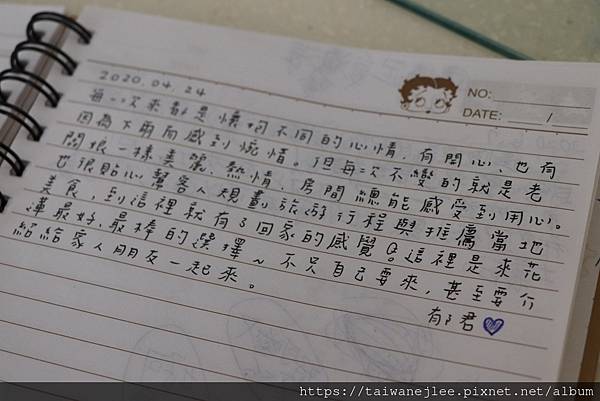 NO:
DATE: /
2020.04.24
每一次來都是懷抱不同的心情,有開心、也有
因為下雨而感到惋惜。但每次不變的就是老
闆娘一樣美麗、熱情,房間總能感受到用心。
也很貼心幫客人規劃旅遊行程與推薦當地
美食,到這裡就有了回家的感覺。這裡是來花
蓮最好、最棒的選擇~不只自己要來,甚至要介
紹給家人朋友一起來。
郁君
https://taiwanejlee.pixnet.net/album